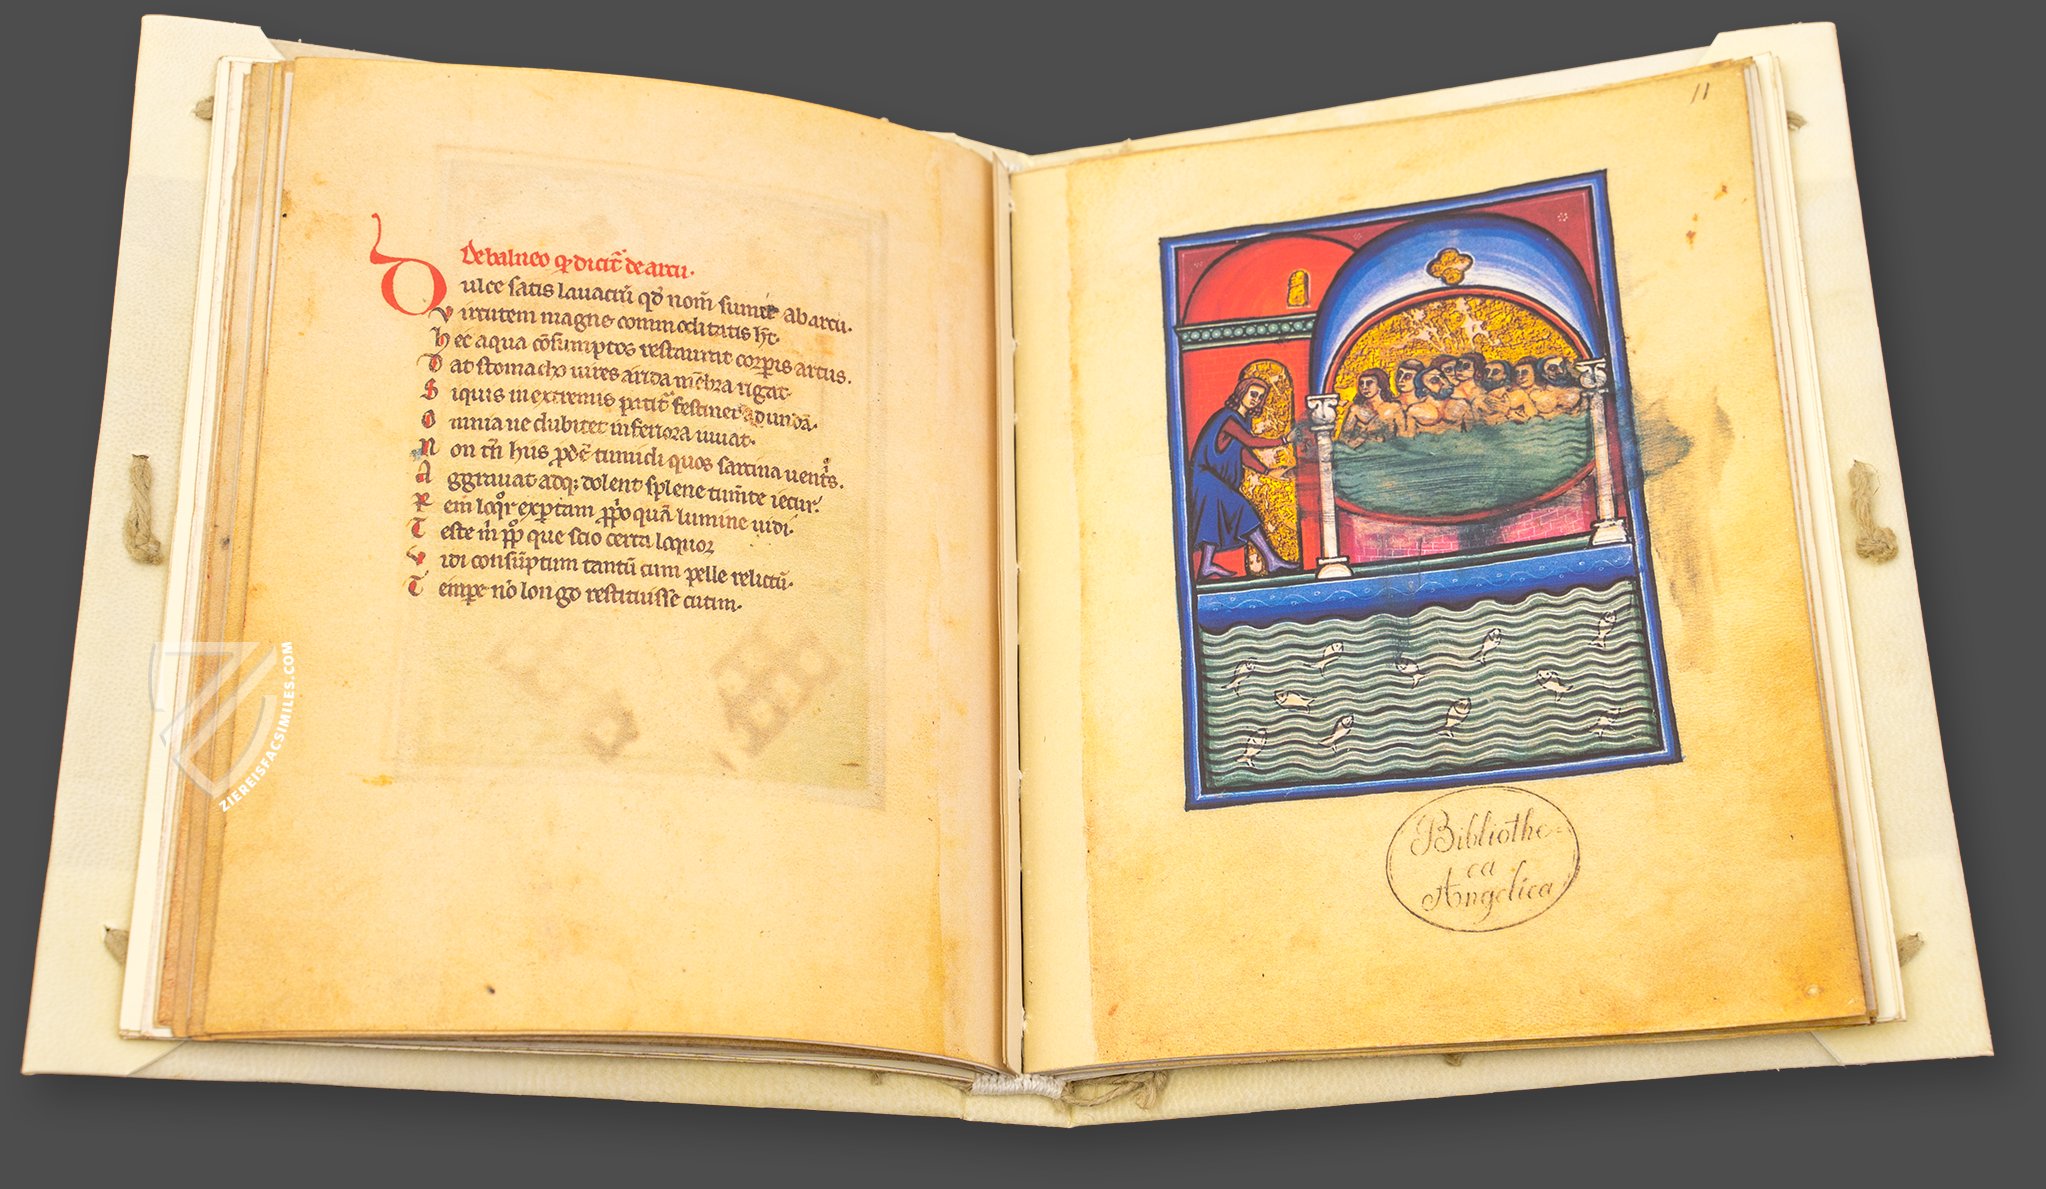 De balneo qď dicit̃ de arcu.
Dulce satis lavacrũ qď nom̃ sumit ab arcu.
Virtutem magne commoditatis hт̃.
Hec aqua cõsumptos restaurat corꝑis artus.
Dat stomacho uires arida mẽbra rigat.
Siquis in extremis patit̃ festinet ad undã.
Omnia ne dubitet inferiora iuuat.
Non tñ hiis ꝓdẽ tumidi quos sarcina uentͥs.
Aggrauat adqꝫ dolent splene tum̃te iecur.
Rem̃ loqͦr exꝑtam ꝓpͥo quã lumine uidi.
Teste m̃ ꝓpͥo que scio certa loquor
Vidi consũptum tantũ cum pelle relictũ.
Tempe nͦ longo restituisse cutim.
11
Bibliothe=
ca
Angelica
ZIEREISFACSIMILES.COM